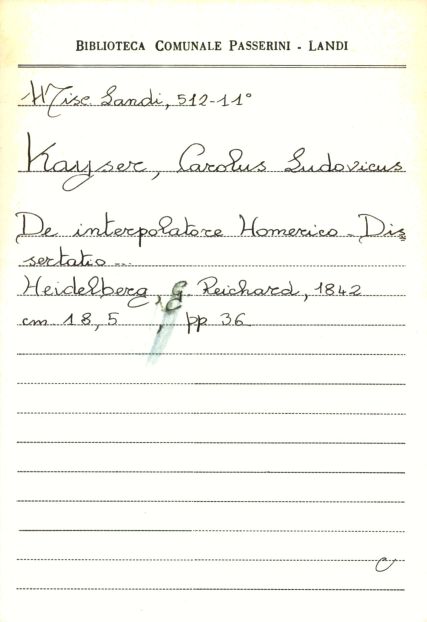 BIBLIOTECA COMUNALE PASSERINI - LANDI
Misc Landi, 512-11°
Kayser, Carolus Ludovicus
De interpolatore Homerico - Dis
sertatio ...
Heidelberg, G. Reichard, 1842
cm 18,5 , pp 36
C